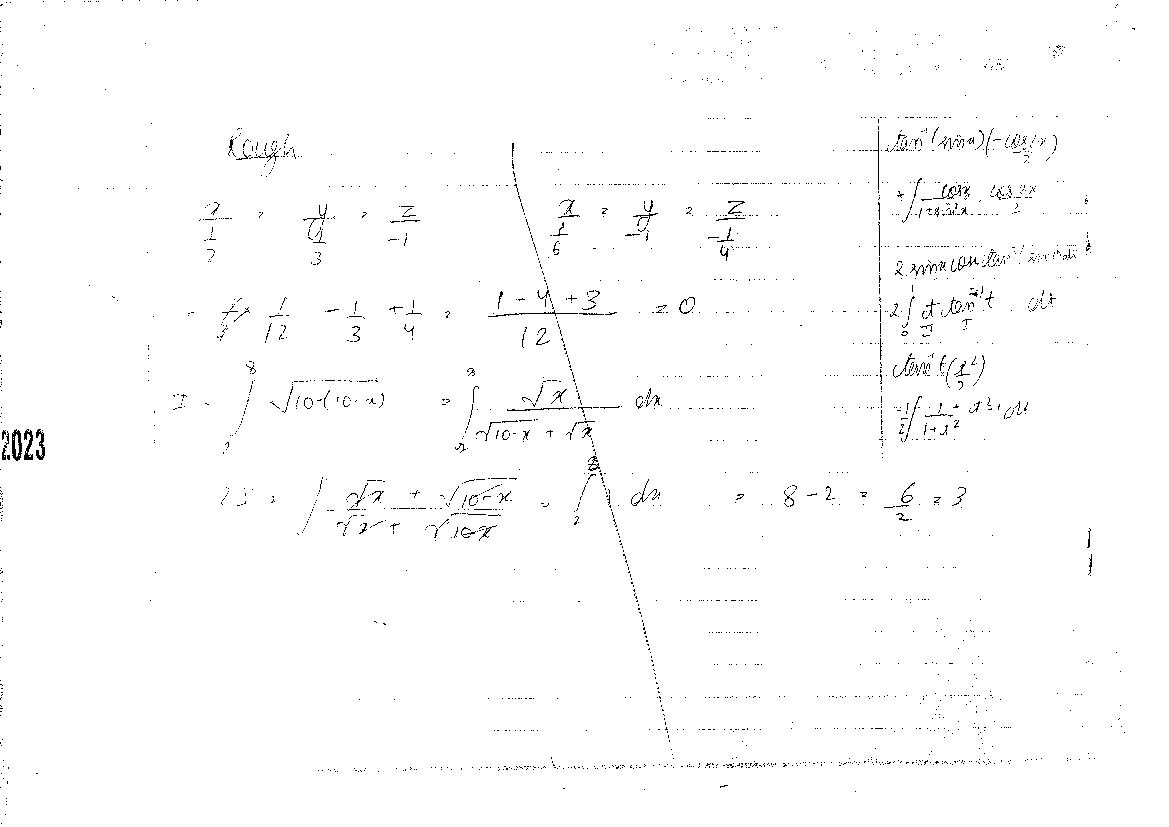 Rough
x/(1/2) = y/(1/3) = z/-1    x/(1/6) = y/-1 = z/(-1/4)
= 1/12 - 1/3 + 1/4 = (1 - 4 + 3)/12 = 0
I = ∫₂⁸ √10-(10-x) = ∫₂⁸ √x/(√10-x + √x) dx
2I = ∫ (√x + √10-x)/(√x + √10-x) = ∫₂⁸ 1 dx = 8 - 2 = 6/2 = 3
2023
tan⁻¹(sin x)(-cos
+ ∫ cos x/(1+sin²x) cos 2x/2
2 sin x cos x tan⁻¹(sin x) dx
2 ∫₀¹ t tan⁻¹ t dt
II I
tan⁻¹ t (t²/2)
-1/2 ∫